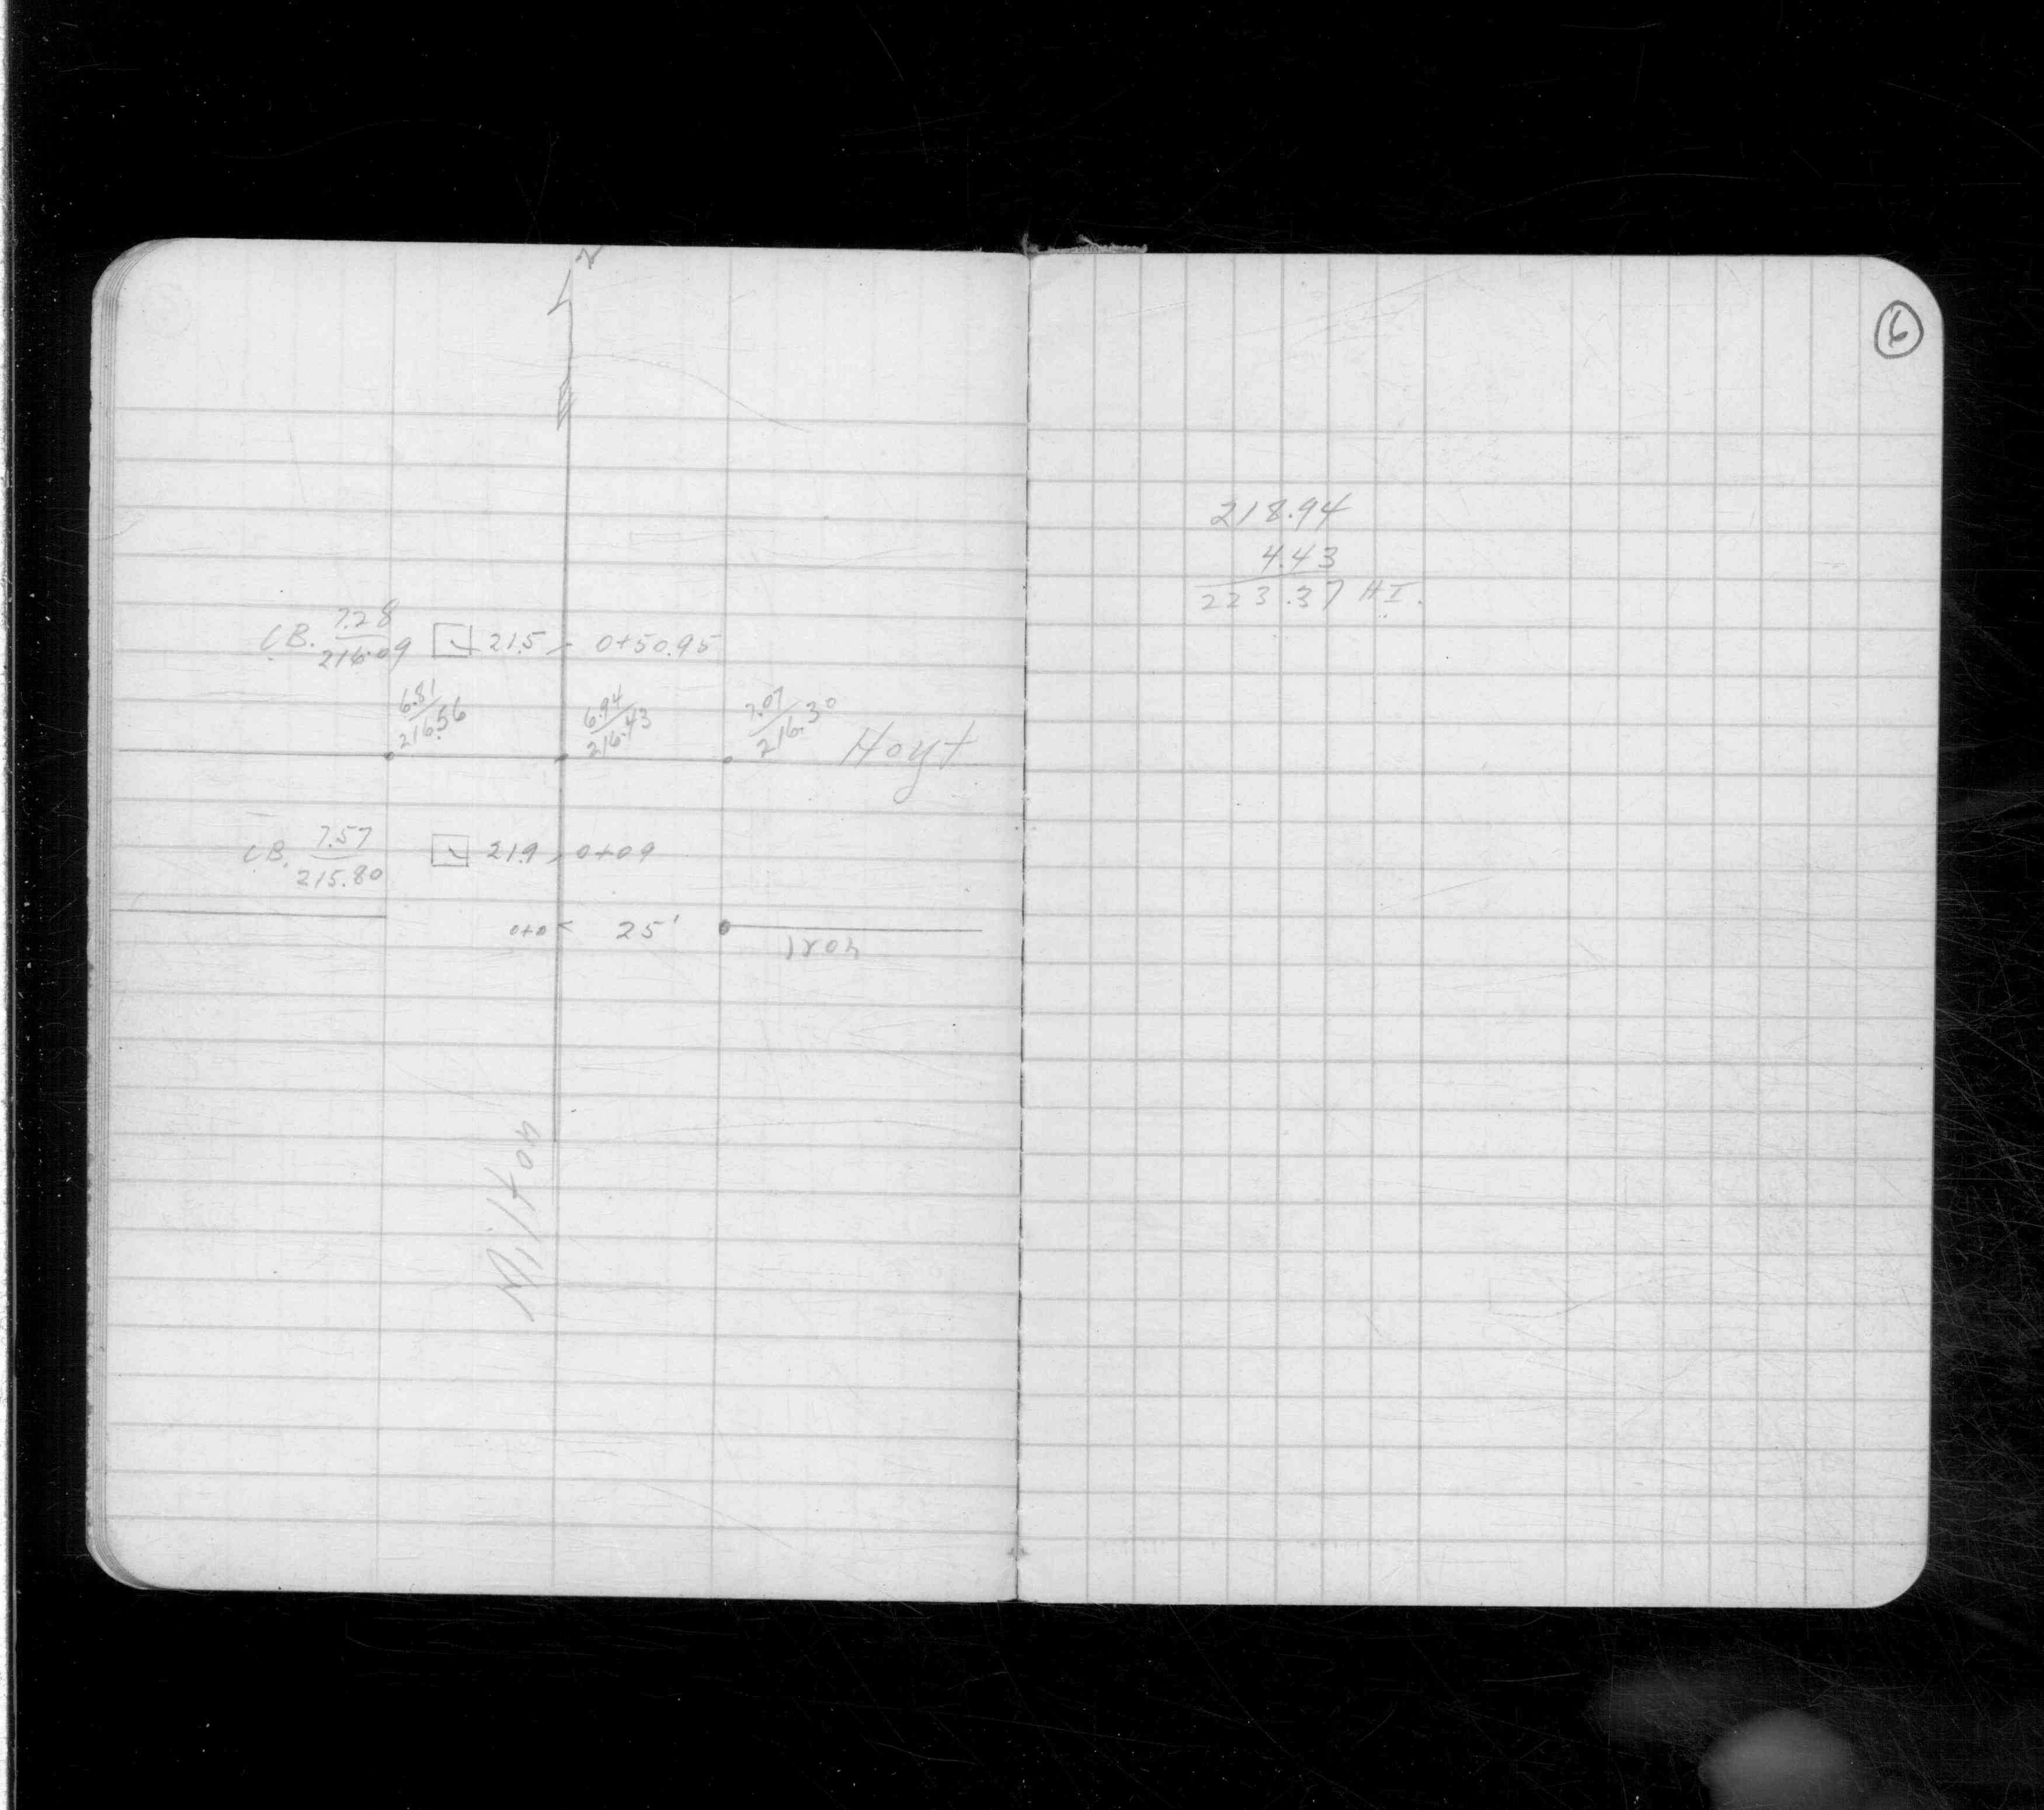 N
C.B. 7.28
216.09
21.5 0+50.95
6.81
216.56
6.94
216.43
7.07
216.30
Hoyt
C.B. 7.57
215.80
21.9 0+09
0+0 25'
Iron
Milton
6
218.94
4.43
223.37 H.I.